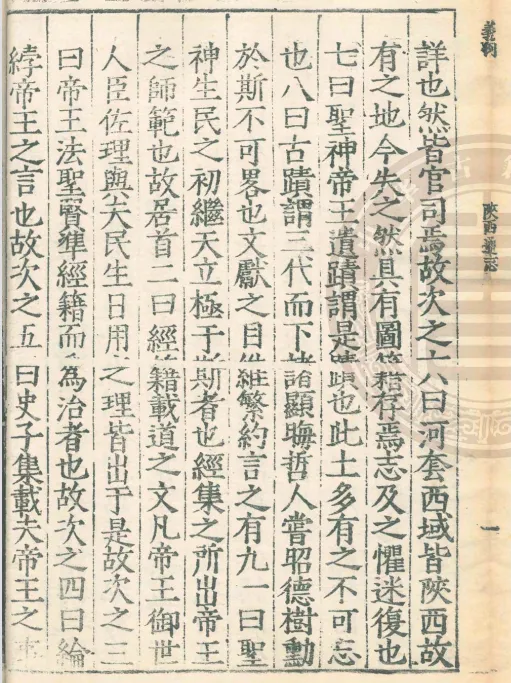 陝西通志
一
詳也然皆官司焉故次之六曰河套西域皆陝西故
有之地今失之然具有圖籍存焉志及之懼迷復也
七曰聖神帝王遺蹟謂是蹟也此土多有之不可忘
也八曰古蹟謂三代而下諸顯晦哲人嘗昭德樹勳
於斯不可畧也文獻之目雖繁約言之有九一曰聖
神生民之初繼天立極于斯者也經集之所出帝王
之師範也故居首二曰經籍載道之文凡帝王御世
人臣佐理與夫民生日用之理皆出于是故次之三
曰帝王法聖賢準經籍而為治者也故次之四曰綸
綍帝王之言也故次之五曰史子集載夫帝王之